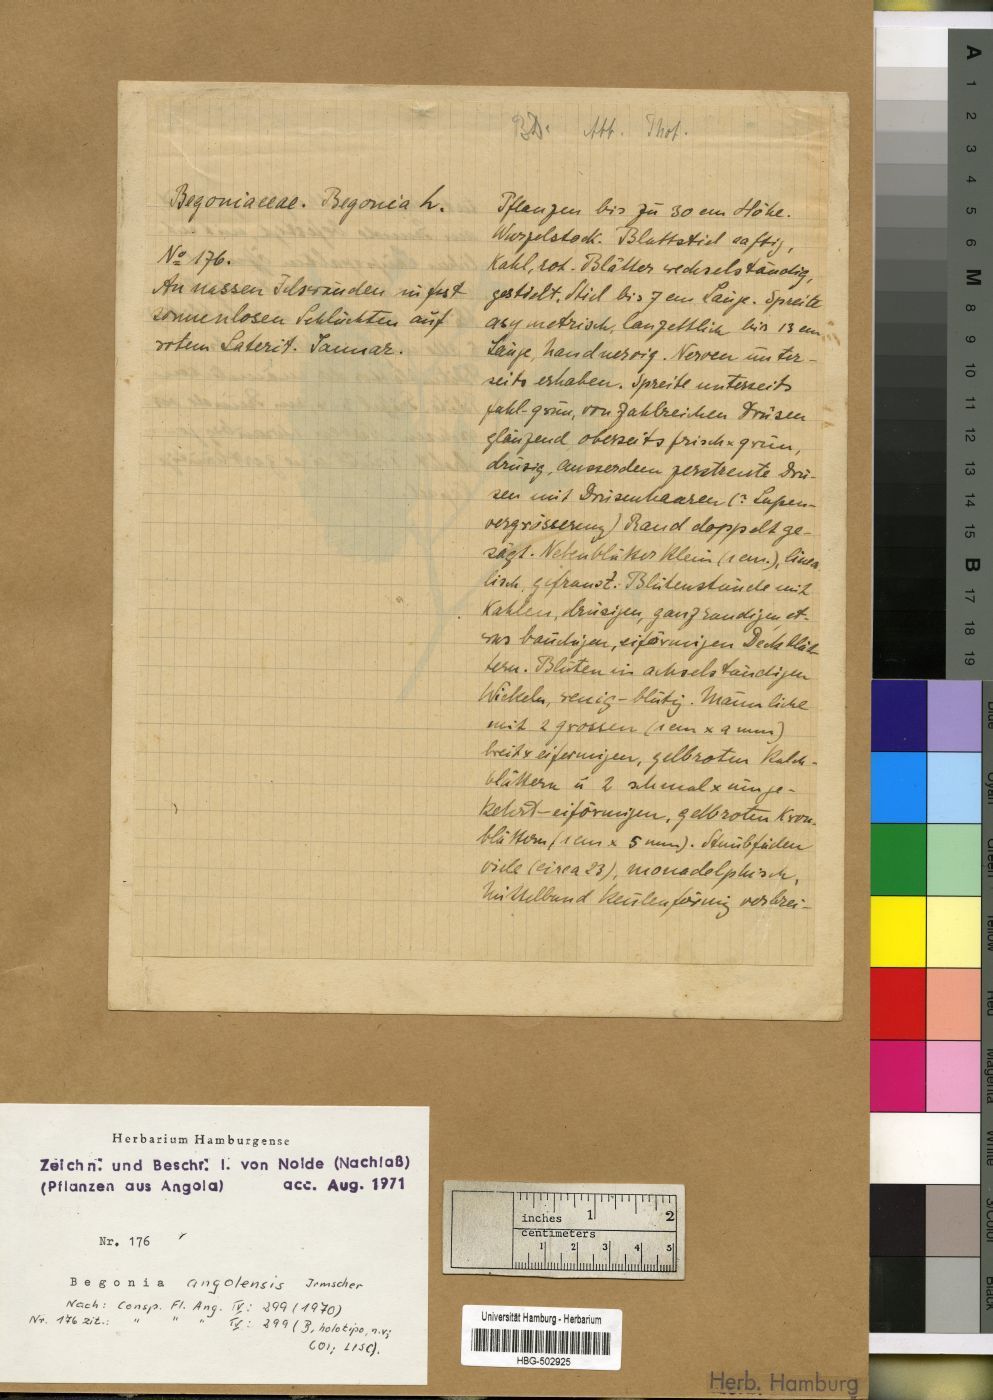 Abb. Phot.
Begoniaceae. Begonia L.
No 176.
An nassen Felswänden in fast
sonnenlosen Schluchten auf
rotem Laterit. Januar.
Pflanzen bis zu 30 cm Höhe.
Wurzelstock. Blattstiel saftig,
kahl, rot. Blätter wechselständig,
gestielt. Stiel bis 7 cm Länge. Spreite
asymetrisch, lanzettlich bis 13 cm
Länge, handnervig. Nerven unter-
seits erhaben. Spreite unterseits
fahl-grün, von zahlreichen Drüsen
glänzend oberseits frisch x grün,
drüsig, ausserdem zerstreute Drü-
sen mit Drüsenhaaren (: Lupen-
vergrösserung) Rand doppelt ge-
sägt. Nebenblätter klein (1 cm.), linea
lisch, gefranst. Blütenstände mit
kahlen, drüsigen, ganzrandigen, et-
was bauchigen, eiförmigen Deckblät-
tern. Blüten in achselständigen
Wickeln, wenig-blütig. Männliche
mit 2 grossen (1 cm x 9 mm)
breit x eiförmigen, gelbroten Kelch-
blättern u 2 schmal x umge-
kehrt-eiförmigen, gelbroten Kron-
blättern (1 cm x 5 mm). Staubfäden
viele (circa 23), monadelphisch,
Mittelband keulenförmig verbrei-
Herbarium Hamburgense
Zeichn. und Beschr. I. von Nolde (Nachlaß)
(Pflanzen aus Angola) acc. Aug. 1971
Nr. 176
Begonia angolensis Irmscher
Nach: Consp. Fl. Ang. IV: 299 (1970)
Nr. 176 zit.: " " " IV: 299 (B, holotipo, n.v;
COI; LISC).
inches 1 2
centimeters
1 2 3 4 5
Universität Hamburg - Herbarium
HBG-502925
Herb. Hamburg
A
1
2
3
4
5
6
M
8
9
10
11
12
13
14
15
B
17
18
19
Blue
Cyan
Green
Yellow
Red
Magenta
White
3/Color
Black